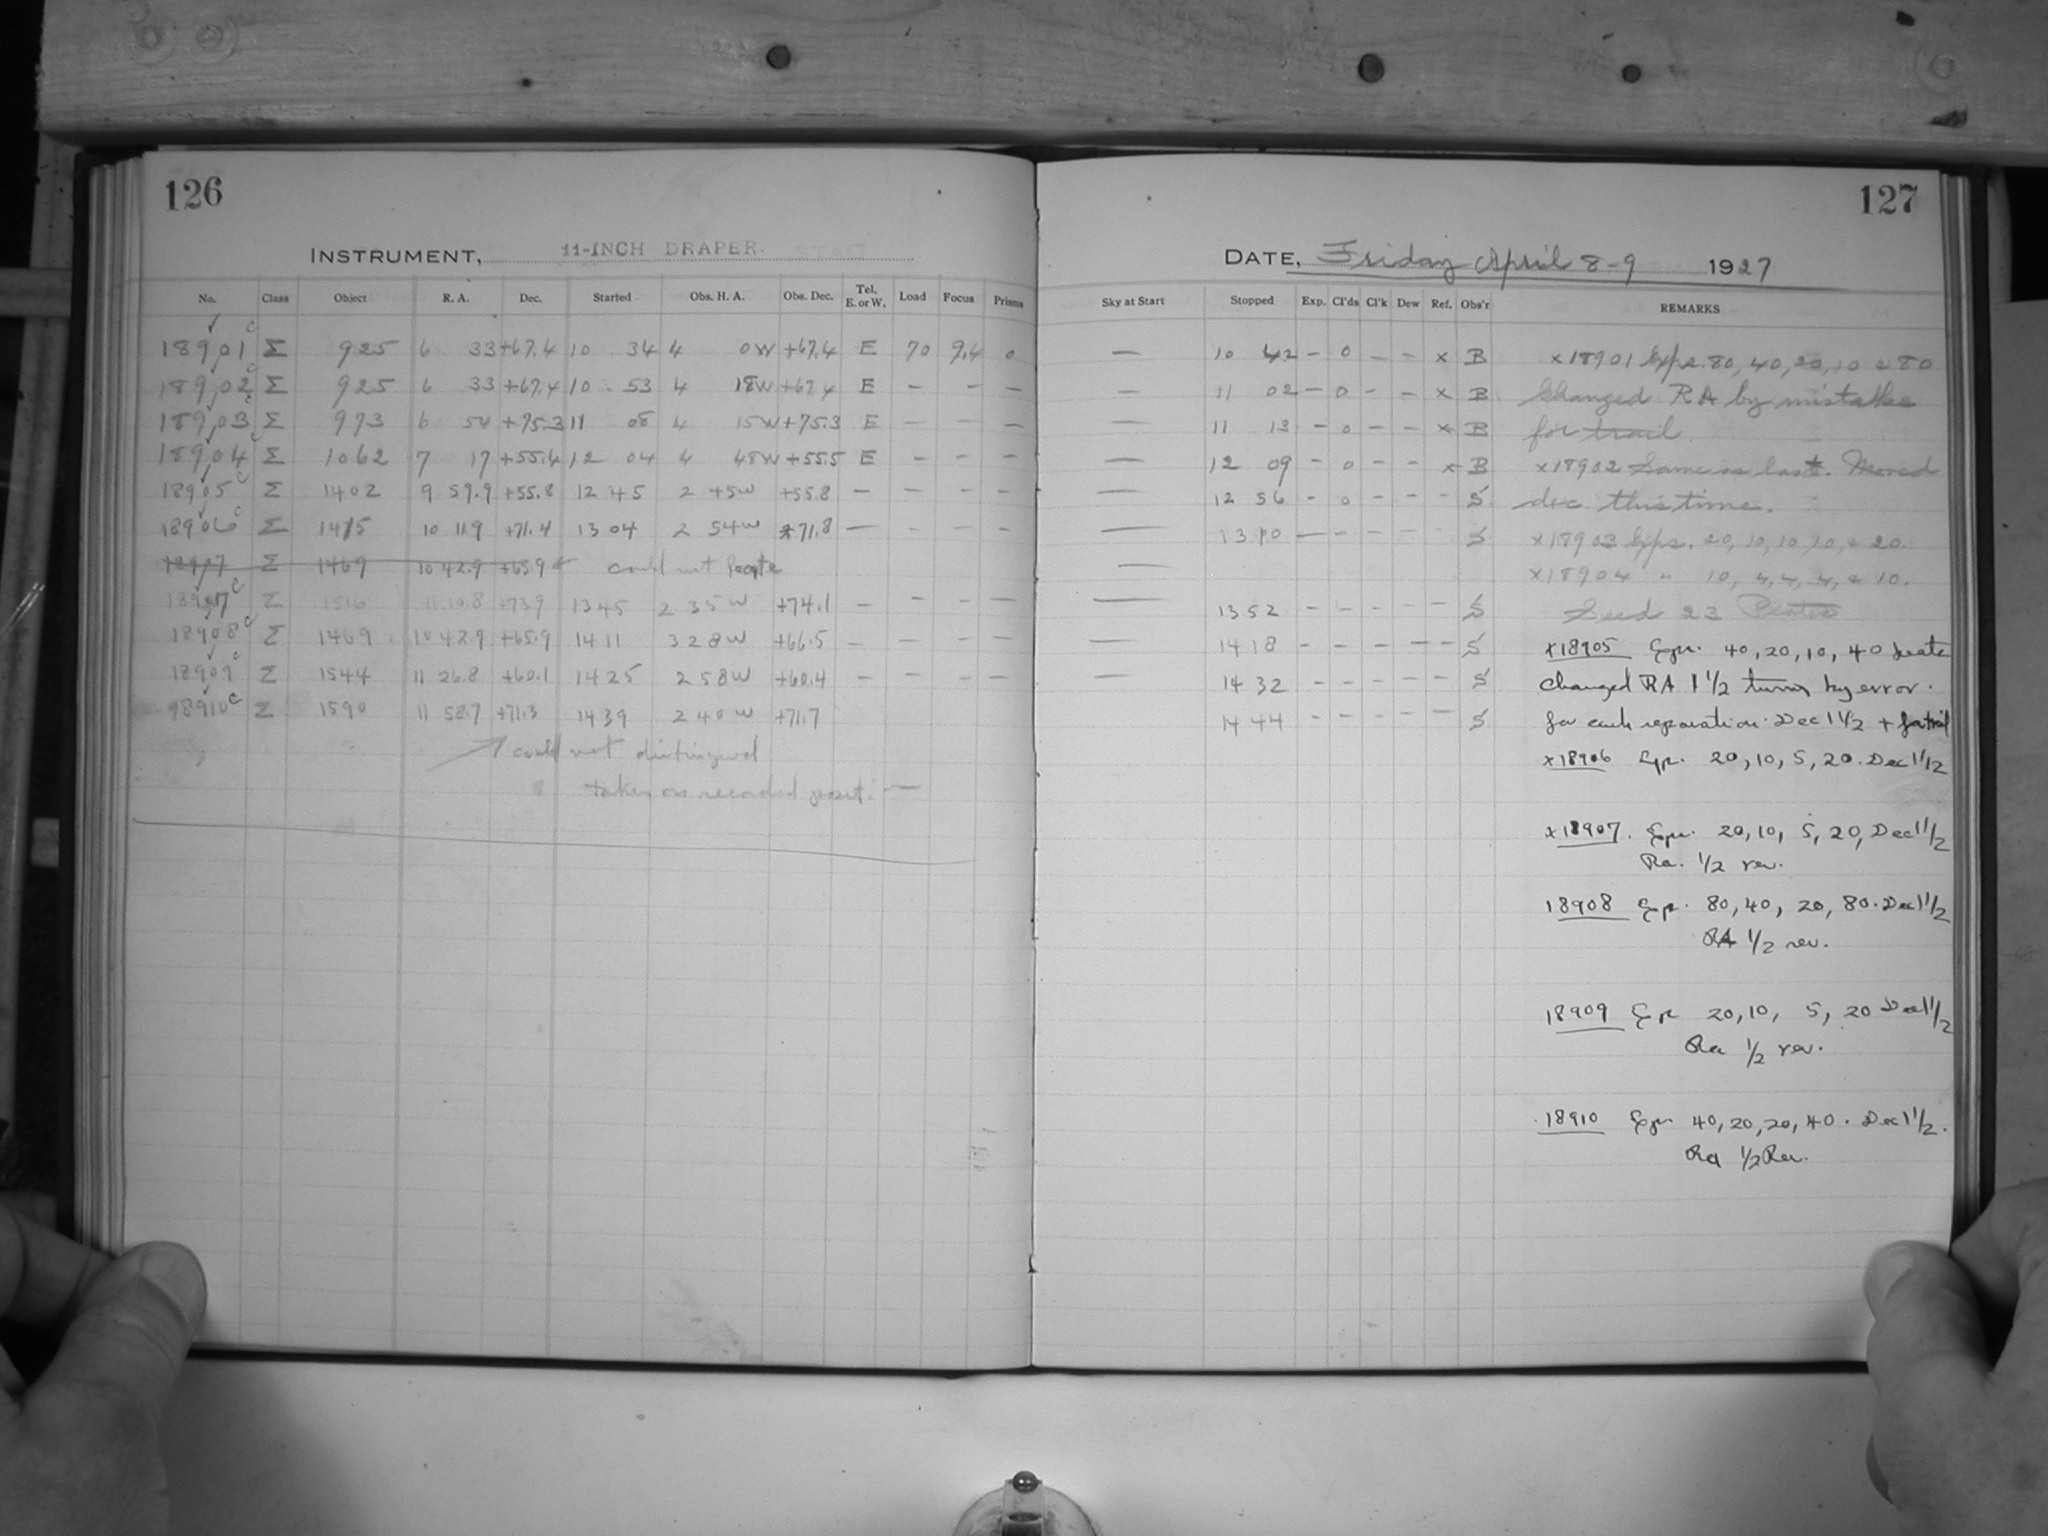 126
INSTRUMENT, 11-INCH DRAPER.
No. Class Object R. A. Dec. Started Obs. H. A. Obs. Dec. Tel. E. or W. Load Focus Prisms
18901 Σ 925 6 33 +67.4 10 34 4 0W +67.4 E 70 9.4 0
18902 Σ 925 6 33 +67.4 10 53 4 18W +67.4 E — — —
18903 Σ 973 6 54 +75.3 11 08 4 15W +75.3 E — — —
18904 Σ 1062 7 17 +55.4 12 04 4 48W +55.5 E — — —
18905 Σ 1402 9 59.9 +55.8 12 45 2 45W +55.8 — — — —
18906 Σ 1415 10 11.9 +71.4 13 04 2 54W +71.8 — — — —
18907 Σ 1469 10 42.9 +65.9 could not locate
18907 Σ 1516 11 10.8 +73.9 13 45 2 35W +74.1 — — — —
18908 Σ 1469 10 42.9 +65.9 14 11 3 28W +66.5 — — — —
18909 Σ 1544 11 26.8 +60.1 14 25 2 58W +60.4 — — — —
18910 Σ 1590 11 58.7 +71.3 14 39 2 40W +71.7
could not
taken on recorded posit. —
127
DATE, Friday April 8-9 1927
Sky at Start Stopped Exp. Cl'ds Cl'k Dew Ref. Obs'r REMARKS
— 10 42 — 0 — — x B x18901 Exps. 80, 40, 20, 10 & 80
— 11 02 — 0 — — x B Changed RA by mistake
— 11 13 — 0 — — x B for trail.
— 12 09 — 0 — — x B x18902 Same as last. Moved
— 12 56 — 0 — — — S dec this time.
— 13 10 — — — — — S x18903 Exps. 20, 10, 10, 10, & 20.
— x18904 " 10, 4, 4, 4, & 10.
— 13 52 — — — — — S Seed 23 Plates
— 14 18 — — — — — S x18905 Exps. 40, 20, 10, 40
— 14 32 — — — — — S Changed RA 1 1/2 turns by error.
14 44 — — — — S for each separation. Dec 1 1/2 + for trail
x18906 Exp. 20, 10, 5, 20. Dec 1 1/2
x18907. Exp. 20, 10, 5, 20, Dec 1 1/2
Ra. 1/2 rev.
18908 Exp. 80, 40, 20, 80. Dec 1 1/2
RA 1/2 rev.
18909 Exp 20, 10, 5, 20 Dec 1 1/2
Ra 1/2 rev.
18910 Exp 40, 20, 20, 40. Dec 1 1/2.
Ra 1/2 Rev.